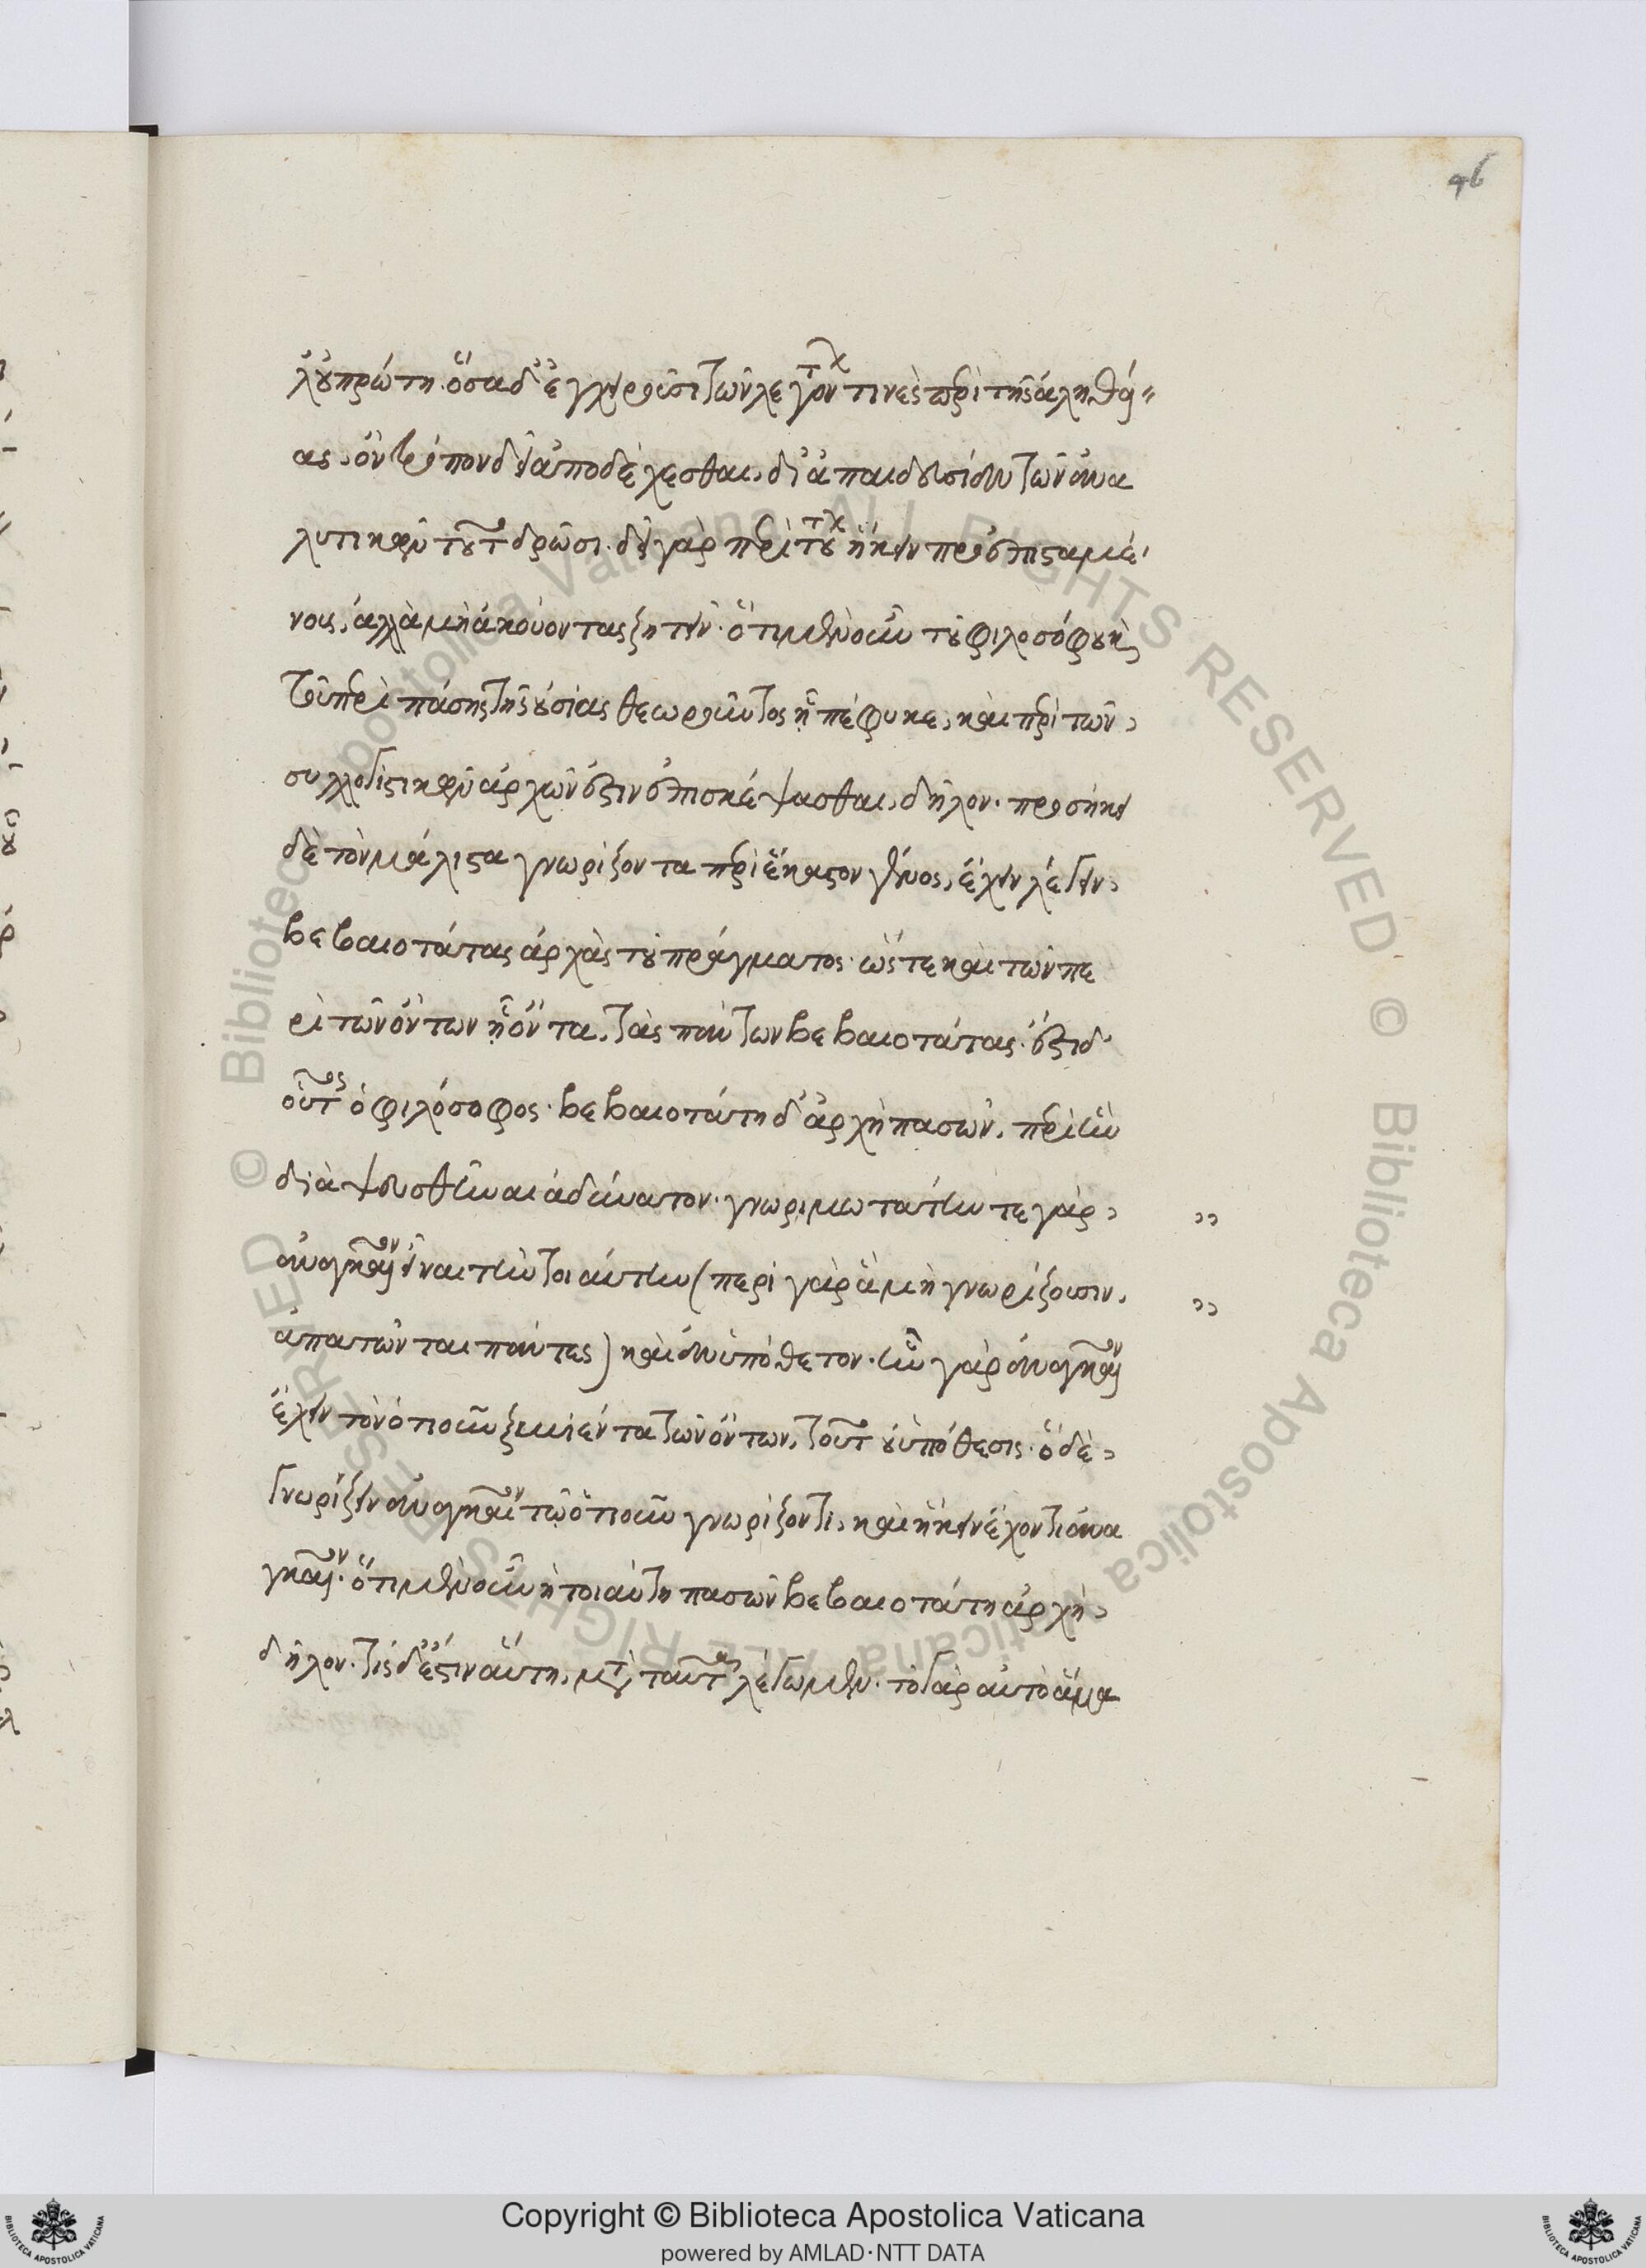 46
λ' οὐ πρώτη. ὅσα δ' ἐγχειροῦσι τῶν λεγόντων τινὲς περὶ τῆς ἀληθεί-
ας, ὃν τρόπον δεῖ ἀποδέχεσθαι, δι' ἀπαιδευσίαν τῶν ἀνα
λυτικῶν τοῦτο δρῶσι. δεῖ γὰρ περὶ τούτων ἥκειν προεπισταμέ-
νους, ἀλλὰ μὴ ἀκούοντας ζητεῖν. ὅτι μὲν οὖν τοῦ φιλοσόφου καὶ
τοῦ περὶ πάσης τῆς οὐσίας θεωροῦντος ᾗ πέφυκε, καὶ περὶ τῶν
συλλογιστικῶν ἀρχῶν ἐστιν ἐπισκέψασθαι, δῆλον. προσήκει
δὲ τὸν μάλιστα γνωρίζοντα περὶ ἕκαστον γένος, ἔχειν λέγειν
βεβαιοτάτας ἀρχὰς τοῦ πράγματος. ὥστε καὶ τῶν πε
ρὶ τῶν ὄντων ᾗ ὄντα, τὰς πάντων βεβαιοτάτας. ἔστι δ'
οὗτος ὁ φιλόσοφος. βεβαιοτάτη δ' ἀρχὴ πασῶν, περὶ ἣν
διαψευσθῆναι ἀδύνατον. γνωριμωτάτην τε γὰρ
ἀναγκαῖον εἶναι τὴν τοιαύτην (περὶ γὰρ ἃ μὴ γνωρίζουσιν,
ἀπατῶνται πάντες) καὶ ἀνυπόθετον. ἣν γὰρ ἀναγκαῖον
ἔχειν τὸν ὁτιοῦν ξυνιέντα τῶν ὄντων, τοῦτο οὐχ ὑπόθεσις. ὃ δὲ
γνωρίζειν ἀναγκαῖον τῷ ὁτιοῦν γνωρίζοντι, καὶ ἥκειν ἔχοντι ἀνα
γκαῖον. ὅτι μὲν οὖν ἡ τοιαύτη πασῶν βεβαιοτάτη ἀρχὴ
δῆλον. τίς δ' ἔστιν αὕτη, μετὰ ταῦτα λέγωμεν. τὸ γὰρ αὐτὸ ἅμα
Copyright © Biblioteca Apostolica Vaticana
powered by AMLAD·NTT DATA